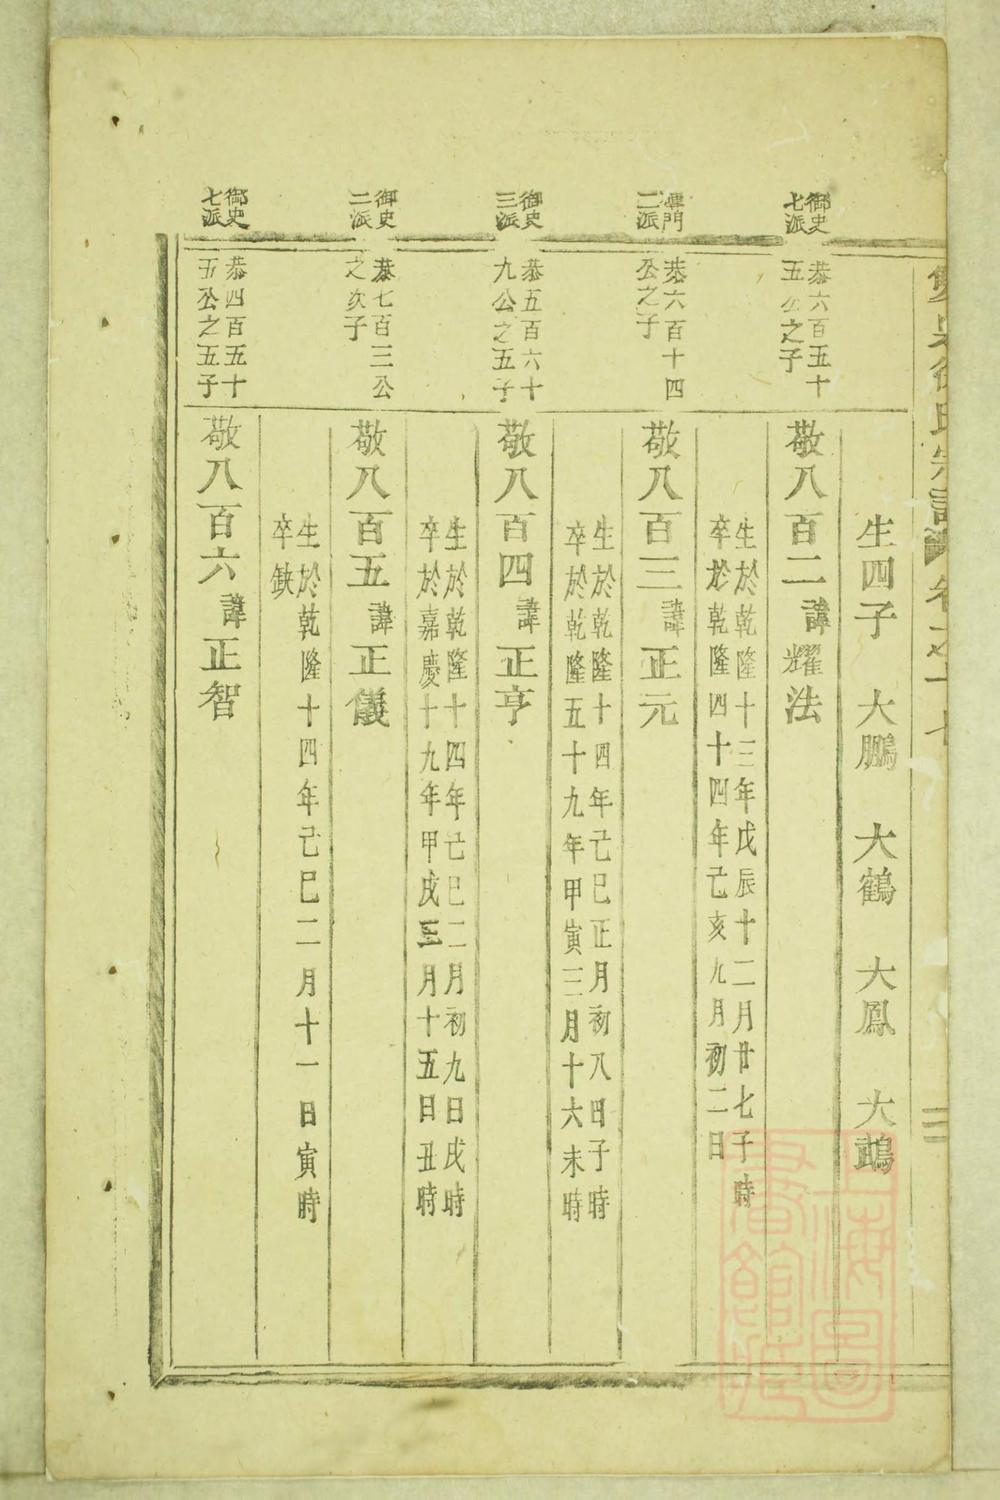 徐氏宗譜 卷之十七
生四子 大鵬 大鶴 大鳳 大鵡
御史七派
恭六百五十五公之子
敬八百二諱耀法
生於乾隆十三年戊辰十二月廿七子時
卒於乾隆四十四年己亥九月初二日
門二派
恭六百十四公之子
敬八百三諱正元
生於乾隆十四年己巳正月初八日子時
卒於乾隆五十九年甲寅三月十六未時
御史三派
恭五百六十九公之五子
敬八百四諱正亨
生於乾隆十四年己巳二月初九日戌時
卒於嘉慶十九年甲戌三月十五日丑時
御史二派
恭七百三公之次子
敬八百五諱正儀
生於乾隆十四年己巳二月十一日寅時
卒缺
御史七派
恭四百五十五公之五子
敬八百六諱正智
上海圖書館藏